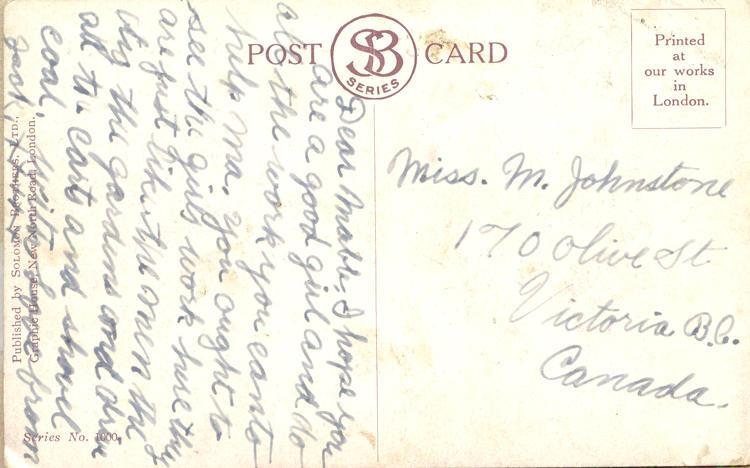 POST SB SERIES CARD
Printed
at
our works
in
London.
Dear Mable, I hope you
are a good girl and do
all the work you can to
help Ma. You ought to
see the girls work here they
are just like the men, they
dig the gardens and drive
all the carts and shovel
coal, with love from
Jack, x x x x
Miss. M. Johnstone
170 Olive St
Victoria B.C.
Canada.
Published by SOLOMON BROTHERS, LTD.,
Graphic House, New North Road, London.
Series No. 1000.